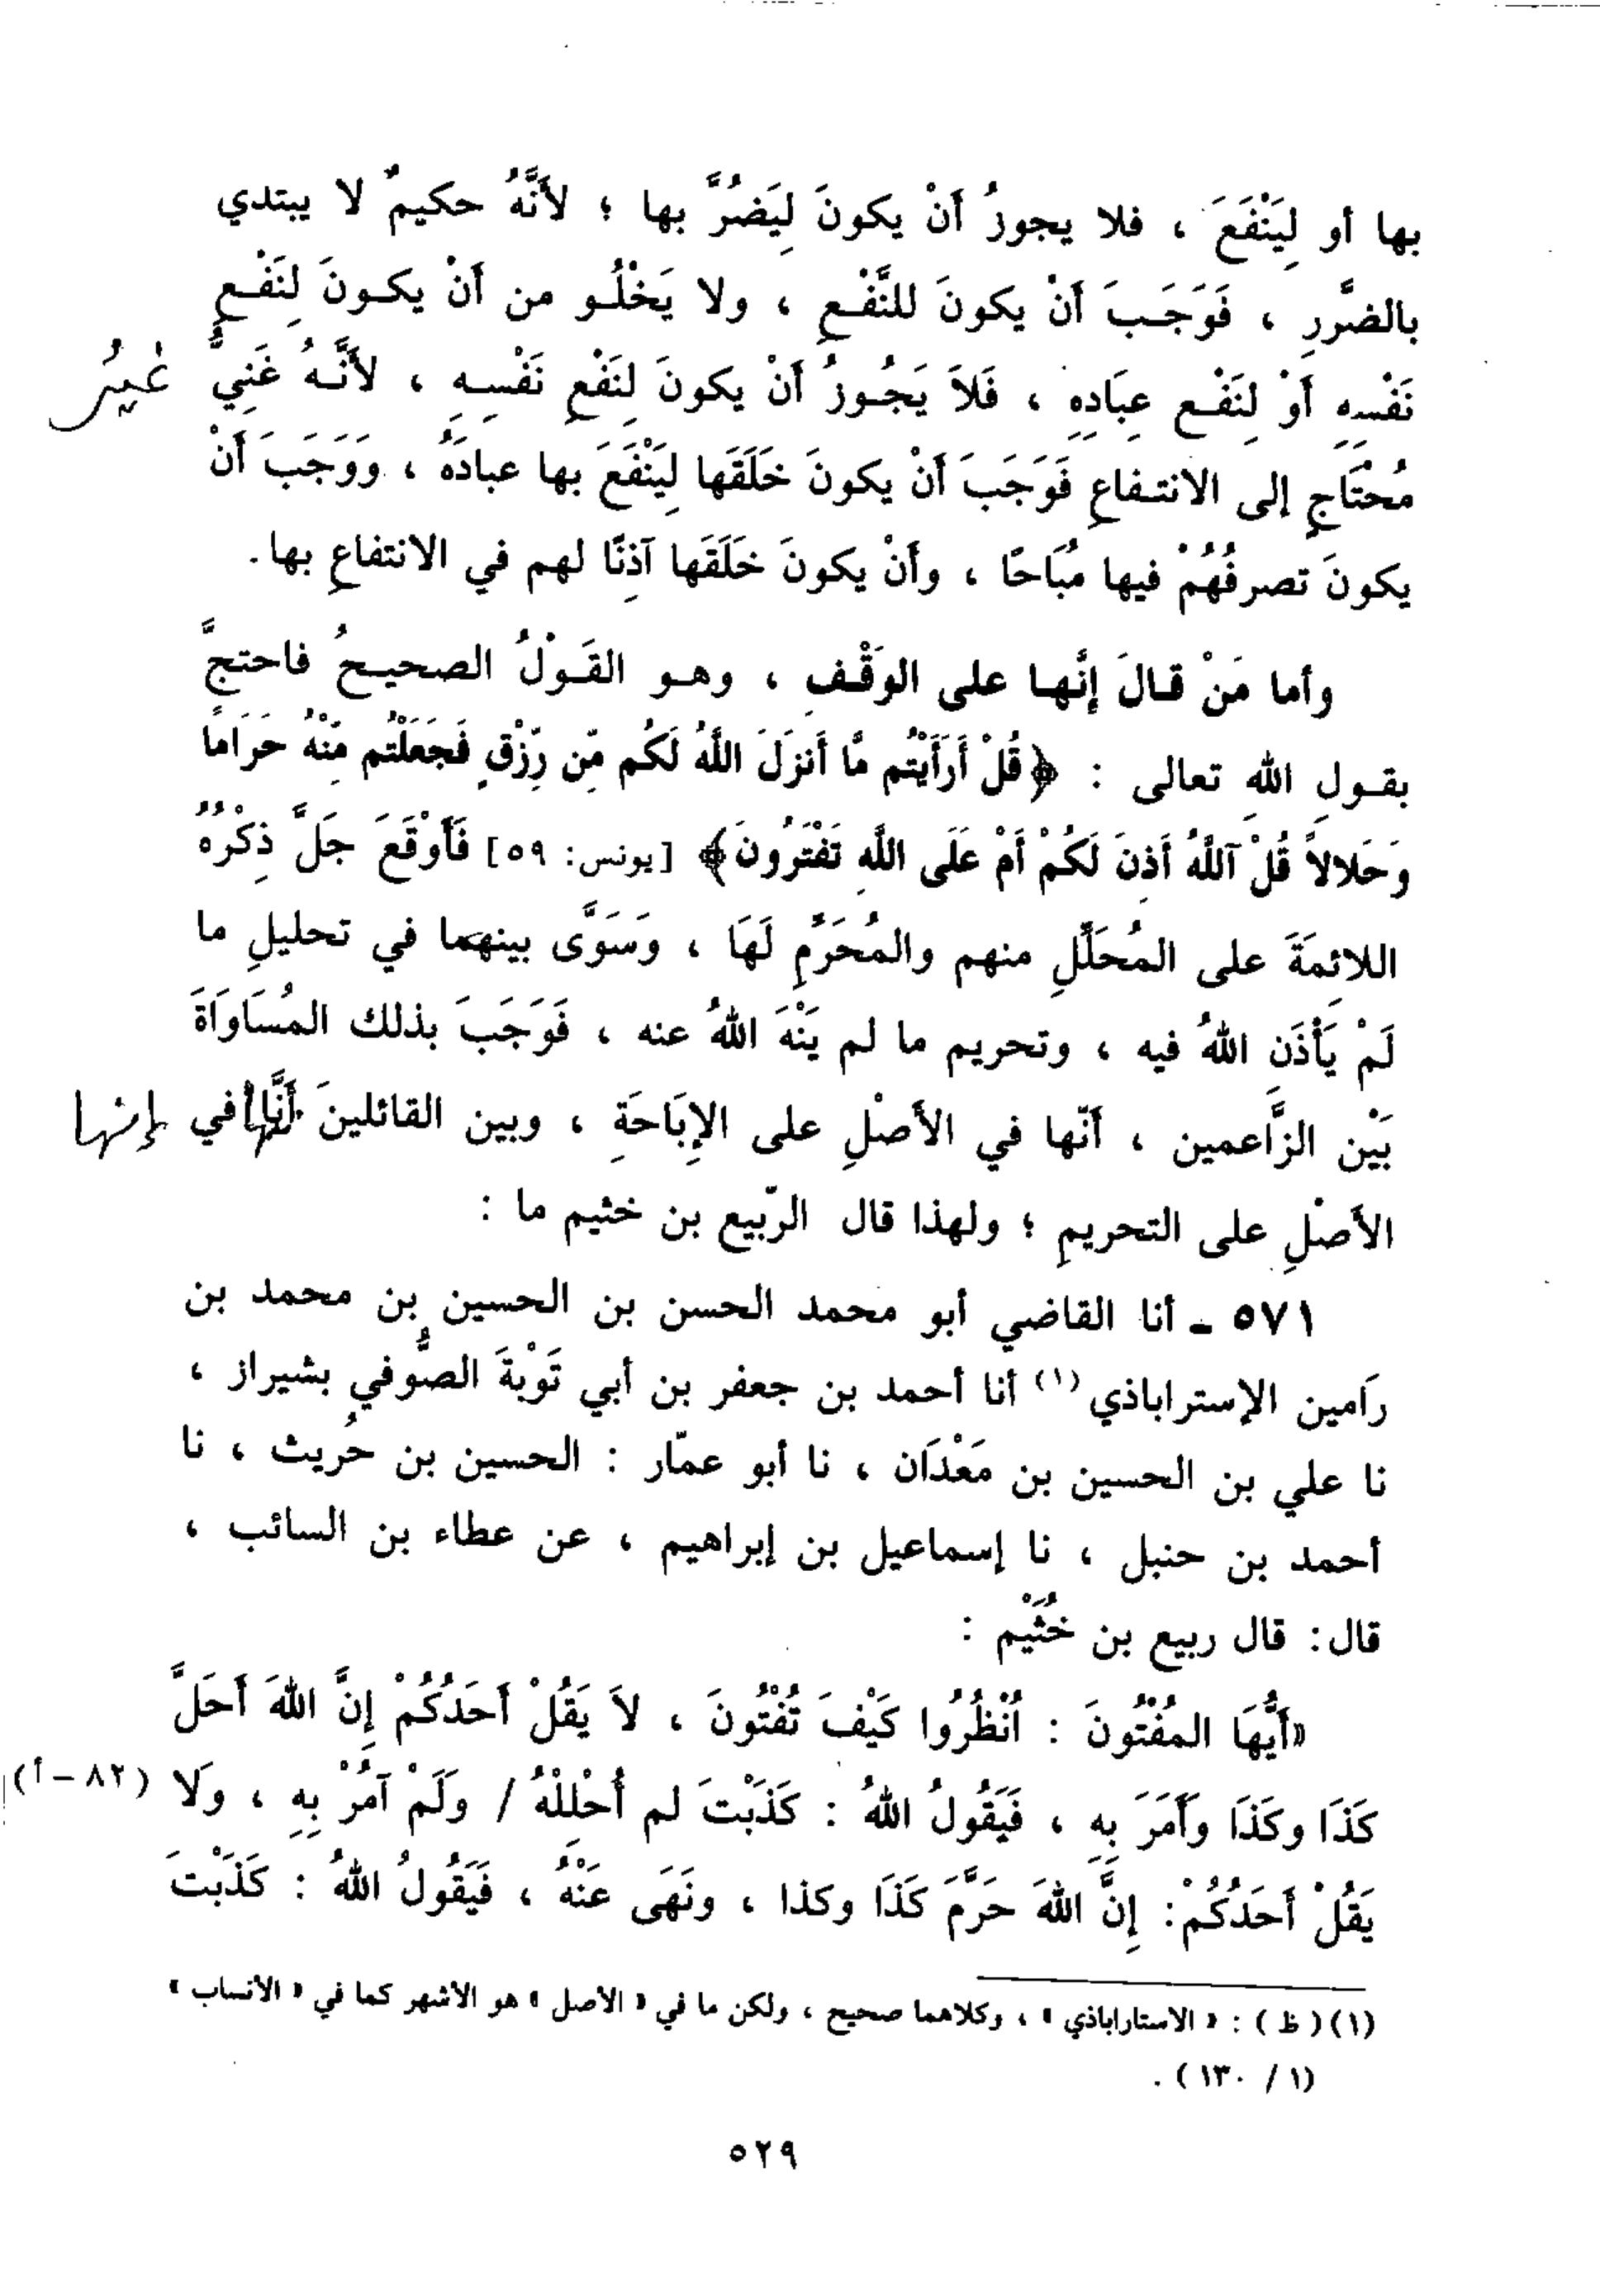 بها أو لِيَنْفَعَ ، فلا يجوزُ أَنْ يكونَ لِيَضُرَّ بها ؛ لأَنَّهُ حكيمٌ لا يبتدي
بالضَّررِ ، فَوَجَـبَ أَنْ يكونَ للنَّفْـعِ ، ولا يَخْلُـو من أَنْ يكـونَ لِنَفْـعِ
نَفْسِهِ أَوْ لِنَفْـعِ عِبَادِهِ ، فَلاَ يَجُـوزُ أَنْ يكونَ لِنَفْعِ نَفْسِـهِ ، لأَنَّـهُ غَنِيٌّ غيرُ
مُحْتَاجٍ إلى الانتـفاعِ فَوَجَبَ أَنْ يكونَ خَلَقَها لِيَنْفَعَ بها عبادَهُ ، ووَجَبَ أَنْ
يكونَ تصرفُهُمْ فيها مُبَاحًا ، وأَنْ يكونَ خَلَقَها آذِنًا لهم في الانتفاعِ بها.
وأما مَنْ قـالَ إِنَّهـا على الوَقْـفِ ، وهـو القَـوْلُ الصحيـحُ فاحتجَّ
بقـولِ اللهِ تعالى : ﴿قُلْ أَرَأَيْتُم مَّا أَنزَلَ اللَّهُ لَكُم مِّن رِّزْقٍ فَجَعَلْتُم مِّنْهُ حَرَامًا
وَحَلالاً قُلْ آللَّهُ أَذِنَ لَكُمْ أَمْ عَلَى اللَّهِ تَفْتَرُونَ﴾ [يونس: ٥٩] فَأَوْقَعَ جَلَّ ذِكْرُهُ
اللائمَةَ على المُحَلِّلِ منهم والمُحَرِّمِ لَهَا ، وَسَوَّى بينهما في تحليلِ ما
لَمْ يَأْذَنِ اللهُ فيه ، وتحريم ما لم يَنْهَ اللهُ عنه ، فَوَجَبَ بذلك المُسَاوَاةَ
بَيْن الزَّاعمين ، أَنّها في الأَصْلِ على الإبَاحَةِ ، وبين القائلينَ أَنَّها في إنها
الأَصْلِ على التحريمِ ؛ ولهذا قال الرّبيع بن خثيم ما :
٥٧١ ـ أنا القاضي أبو محمد الحسن بن الحسين بن محمد بن
رَامين الإستراباذي (١) أنا أحمد بن جعفر بن أبي تَوْبَةَ الصُّوفي بشيراز ،
نا علي بن الحسين بن مَعْدَان ، نا أبو عمّار : الحسين بن حُريث ، نا
أحمد بن حنبل ، نا إسماعيل بن إبراهيم ، عن عطاء بن السائب ،
قال: قال ربيع بن خُثَيْم :
«أَيُّهَا المُفْتُونَ : اُنْظُرُوا كَيْفَ تُفْتُونَ ، لاَ يَقُلْ أَحَدُكُمْ إِنَّ اللهَ أَحَلَّ
كَذَا وكَذَا وأَمَرَ بِهِ ، فَيَقُولُ اللهُ : كَذَبْتَ لم أُحْلِلْهُ / ولَمْ آمُرْ بِهِ ، ولَا (٨٢ – أ)
يَقُلْ أَحَدُكُمْ: إِنَّ اللهَ حَرَّمَ كَذَا وكذا ، ونَهَى عَنْهُ ، فَيَقُولُ اللهُ : كَذَبْتَ
(١) ( ظ ) : « الاستاراباذي » ، وكلاهما صحيح ، ولكن ما في « الأصل » هو الأشهر كما في « الأنساب »
(١ / ١٣٠) .
٥٢٩